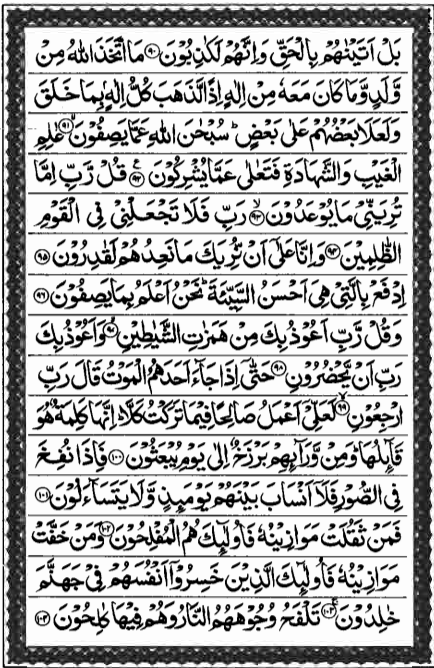 بَلْ اَتَيْنٰهُمْ بِالْحَقِّ وَاِنَّهُمْ لَكٰذِبُوْنَ ﴿۹۰﴾ مَا اتَّخَذَ اللّٰهُ مِنْ
وَّلَدٍ وَّمَا كَانَ مَعَهٗ مِنْ اِلٰهٍ اِذًا لَّذَهَبَ كُلُّ اِلٰهٍۢ بِمَا خَلَقَ
وَلَعَلَا بَعْضُهُمْ عَلٰى بَعْضٍ ؕ سُبْحٰنَ اللّٰهِ عَمَّا يَصِفُوْنَ ﴿۹۱﴾ عٰلِمِ
الْغَيْبِ وَالشَّهَادَةِ فَتَعٰلٰى عَمَّا يُشْرِكُوْنَ ﴿۹۲﴾ قُلْ رَّبِّ اِمَّا
تُرِيَنِّيْ مَا يُوْعَدُوْنَ ﴿۹۳﴾ رَبِّ فَلَا تَجْعَلْنِيْ فِى الْقَوْمِ
الظّٰلِمِيْنَ ﴿۹۴﴾ وَاِنَّا عَلٰٓى اَنْ نُّرِيَكَ مَا نَعِدُهُمْ لَقٰدِرُوْنَ ﴿۹۵﴾
اِدْفَعْ بِالَّتِيْ هِىَ اَحْسَنُ السَّيِّئَةَ ؕ نَحْنُ اَعْلَمُ بِمَا يَصِفُوْنَ ﴿۹۶﴾
وَقُلْ رَّبِّ اَعُوْذُ بِكَ مِنْ هَمَزٰتِ الشَّيٰطِيْنِ ﴿۹۷﴾ وَاَعُوْذُ بِكَ
رَبِّ اَنْ يَّحْضُرُوْنِ ﴿۹۸﴾ حَتّٰٓى اِذَا جَآءَ اَحَدَهُمُ الْمَوْتُ قَالَ رَبِّ
ارْجِعُوْنِ ﴿۹۹﴾ لَعَلِّيْٓ اَعْمَلُ صَالِحًا فِيْمَا تَرَكْتُ كَلَّا ؕ اِنَّهَا كَلِمَةٌ هُوَ
قَآئِلُهَا ؕ وَمِنْ وَّرَآئِهِمْ بَرْزَخٌ اِلٰى يَوْمِ يُبْعَثُوْنَ ﴿۱۰۰﴾ فَاِذَا نُفِخَ
فِى الصُّوْرِ فَلَآ اَنْسَابَ بَيْنَهُمْ يَوْمَئِذٍ وَّلَا يَتَسَآءَلُوْنَ ﴿۱۰۱﴾
فَمَنْ ثَقُلَتْ مَوَازِيْنُهٗ فَاُولٰٓئِكَ هُمُ الْمُفْلِحُوْنَ ﴿۱۰۲﴾ وَمَنْ خَفَّتْ
مَوَازِيْنُهٗ فَاُولٰٓئِكَ الَّذِيْنَ خَسِرُوْٓا اَنْفُسَهُمْ فِيْ جَهَنَّمَ
خٰلِدُوْنَ ﴿۱۰۳﴾ تَلْفَحُ وُجُوْهَهُمُ النَّارُ وَهُمْ فِيْهَا كٰلِحُوْنَ ﴿۱۰۴﴾